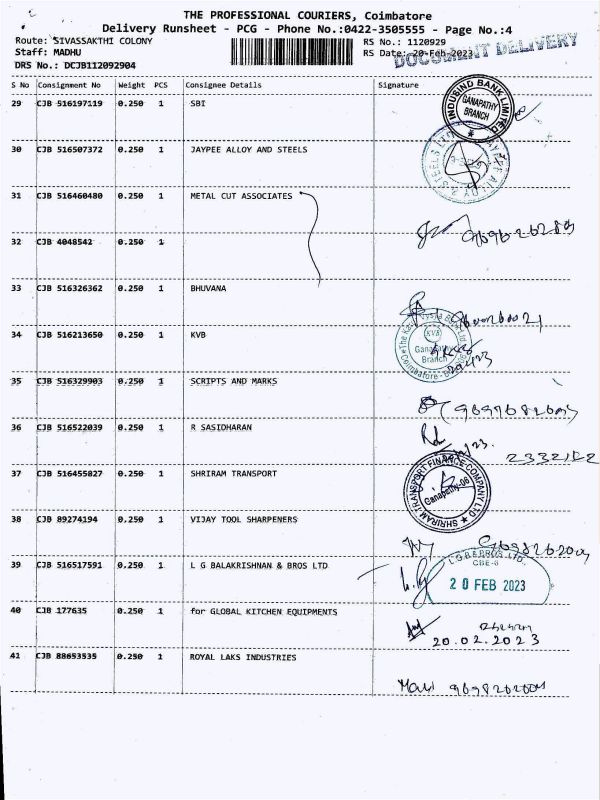 THE PROFESSIONAL COURIERS, Coimbatore
Delivery Runsheet - PCG - Phone No.:0422-3505555 - Page No.:4
Route: SIVASSAKTHI COLONY
Staff: MADHU
DRS No.: DCJB112092904
RS No.: 1120929
RS Date: 20-Feb-2023
DOCUMENT DELIVERY
S No Consignment No Weight PCS Consignee Details Signature
29 CJB 516197119 0.250 1 SBI
INDUSIND BANK LIMITED
GANAPATHY
BRANCH
30 CJB 516507372 0.250 1 JAYPEE ALLOY AND STEELS
31 CJB 516460480 0.250 1 METAL CUT ASSOCIATES
32 CJB 4048542 0.250 1
33 CJB 516326362 0.250 1 BHUVANA
34 CJB 516213650 0.250 1 KVB
KVB
Ganapathy
Branch
Coimbatore
35 CJB 516329903 0.250 1 SCRIPTS AND MARKS
36 CJB 516522039 0.250 1 R SASIDHARAN
37 CJB 516455827 0.250 1 SHRIRAM TRANSPORT
SHRIRAM TRANSPORT FINANCE COMPANY LTD
Ganapathy-06
38 CJB 89274194 0.250 1 VIJAY TOOL SHARPENERS
39 CJB 516517591 0.250 1 L G BALAKRISHNAN & BROS LTD
L.G.B&BROS LTD.
CBE-6
20 FEB 2023
40 CJB 177635 0.250 1 for GLOBAL KITCHEN EQUIPMENTS
20.02.2023
41 CJB 88653535 0.250 1 ROYAL LAKS INDUSTRIES